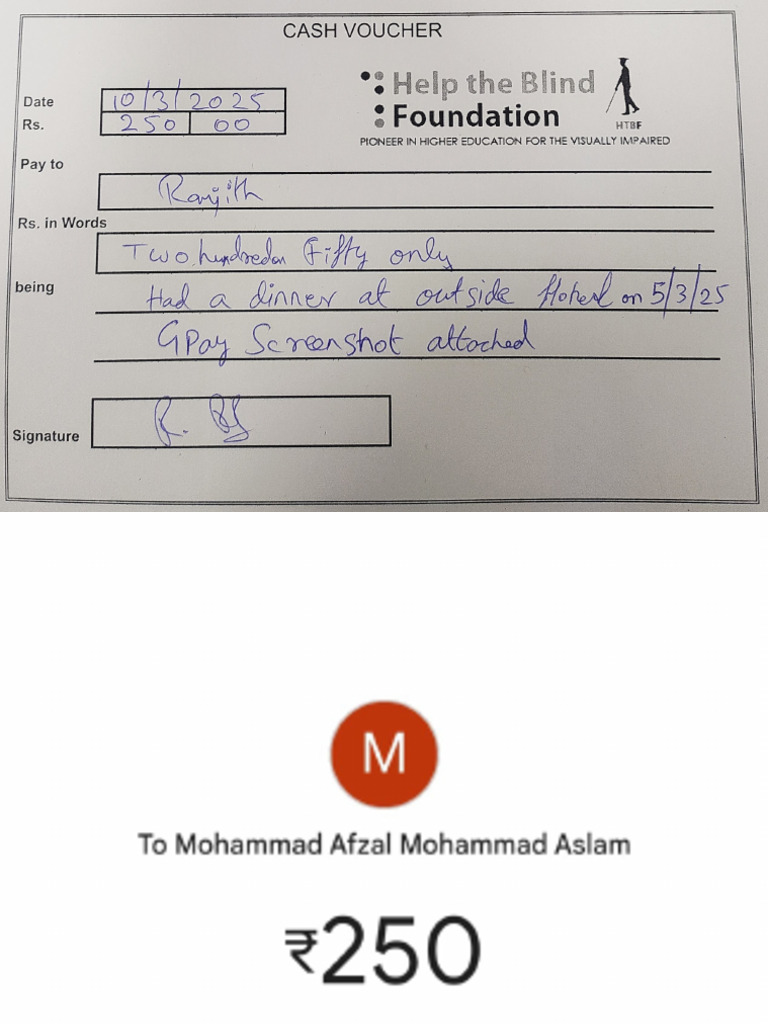 CASH VOUCHER
Help the Blind
Foundation
HTBF
PIONEER IN HIGHER EDUCATION FOR THE VISUALLY IMPAIRED
Date 10/3/2025
Rs. 250 00
Pay to
Ranjith
Rs. in Words
Two hundredan Fifty only
being Had a dinner at outside on 5/3/25
GPay Screenshot attached
Signature
M
To Mohammad Afzal Mohammad Aslam
₹250